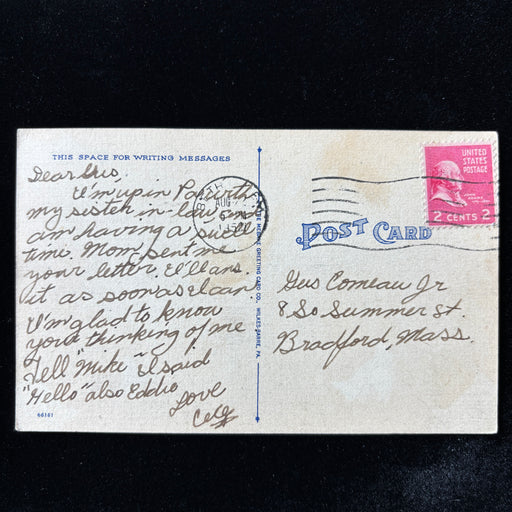 THIS SPACE FOR WRITING MESSAGES
Dear Gus,
I'm up in Pa with
my sister-in-law am
am having a swell
time. Mom sent me
your letter. I'll ans.
it as soon as I can
I'm glad to know
your thinking of me
Tell "Mike" I said
"Hello" also Eddie
Love
66161
GREETING CARD CO., WILKES-BARRE, PA.
AUG
UNITED
STATES
POSTAGE
2 CENTS 2
POST CARD
Gus Comeau Jr
8 So Summer St.
Bradford, Mass.